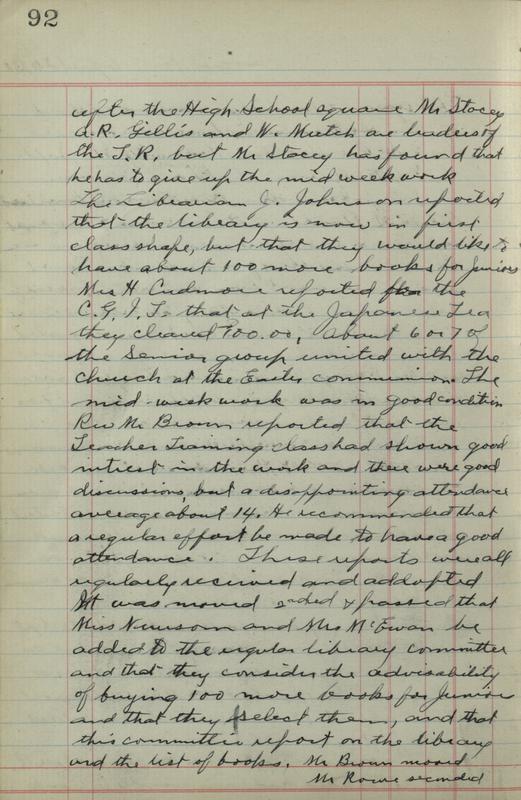 92
after the High School square Mr Stacey
A. R. Gillis and W. Mutch are leaders of
the T. R. but Mr Stacey has found that
he has to give up the mid week work
The Librarian J. Johnson reported
that the library is now in first
class shape, but that they would like to
have about 100 more books for juniors
Mrs H Cudmore reported for the
C. G. I. T. that at the Japanese Tea
they cleared 00.00, about 6 or 7 of
the Senior group united with the
church at the Easter communion. The
mid-week work was in good condition
Rev Mr Brown reported that the
Teacher Training class had shown good
intrest in the work and there were good
discussions, but a disappointing attendance
average about 14. He recommended that
a regular effort be made to have a good
attendance. These reports were all
regularly received and addopted
It was moved & passed that
Miss Newsom and Mrs McEwan be
added to the regular library committee
and that they consider the advisability
of buying 100 more books for Juniors
and that they select them, and that
this committee report on the library
and the list of books. Mr Brown moved
Mr Rowe seconded